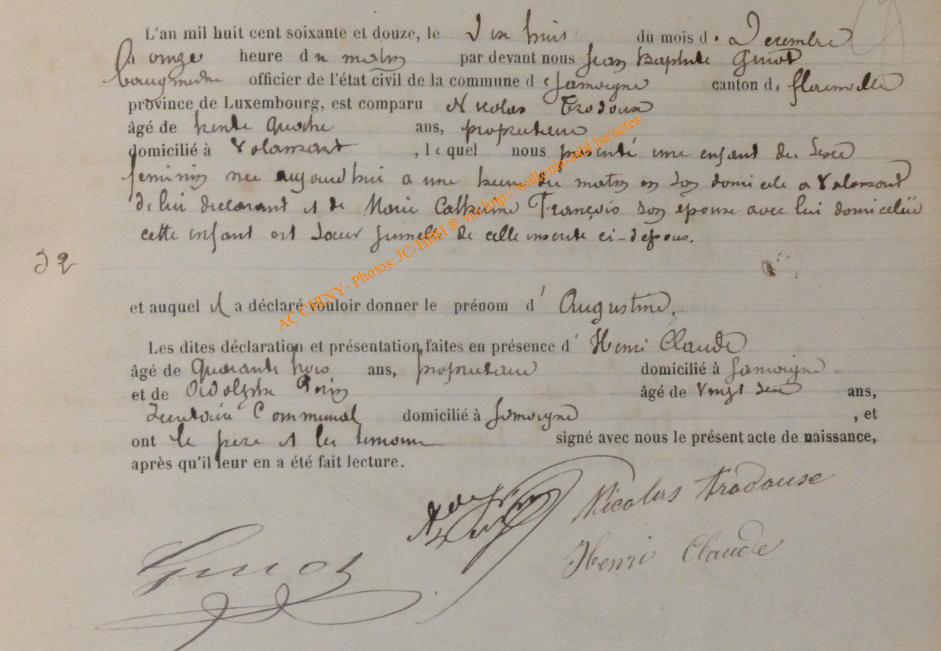 L'an mil huit cent soixante et douze, le dix huit du mois de Décembre
à onze heure du matin par devant nous Jean Baptiste Guiot
bourgmestre officier de l'état civil de la commune de Jamoigne canton de florenville
province de Luxembourg, est comparu Nicolas Trodoux
âgé de trente quatre ans, propriétaire
domicilié à Valansart, lequel nous présenté une enfant du sexe
féminin née aujourd'hui à une heure du matin en son domicile à Valansart
de lui déclarant et de Marie Catherine François son épouse avec lui domiciliée
cette enfant est soeur jumelle de celle inscrite ci-dessous.
32
et auquel il a déclaré vouloir donner le prénom d' Augustine.
Les dites déclaration et présentation faites en présence d' Henri Claude
âgé de quarante trois ans, propriétaire domicilié à Jamoigne
et de Adolphe âgé de vingt ans,
Secrétaire Communal domicilié à Jamoigne, et
ont le père et les témoins signé avec nous le présent acte de naissance,
après qu'il leur en a été fait lecture.
Nicolas Trodouse
Guiot
Henri Claude
AC CHINY - Photos: JC/HBH ® the http://wallonia-asbl.be/actes